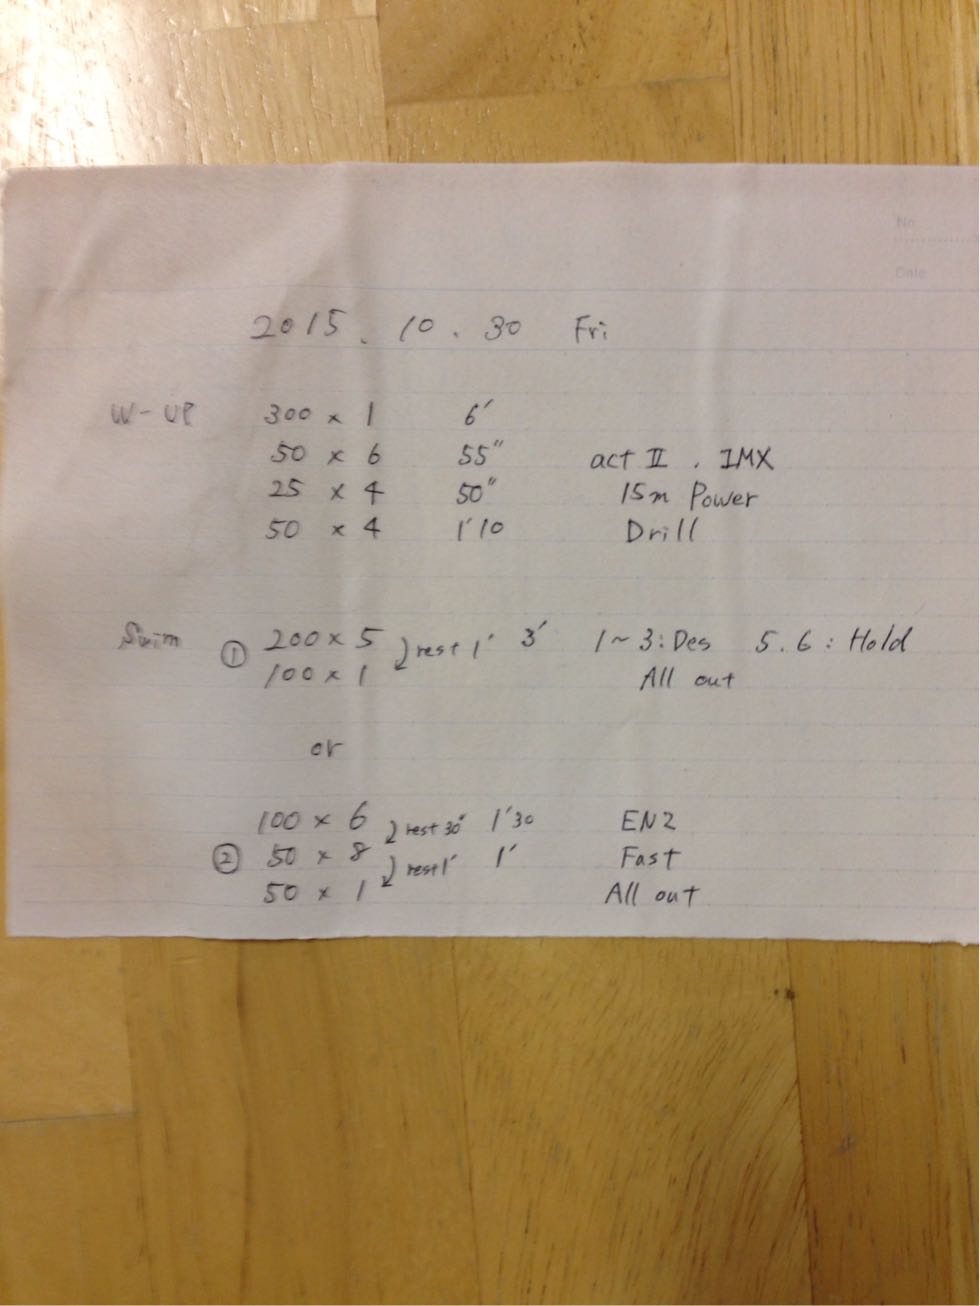 No
Date
2015. 10. 30 Fri
W-UP 300 × 1 6′
50 × 6 55″ act Ⅱ . IMX
25 × 4 50″ 15m Power
50 × 4 1′10 Drill
Swim ① 200 × 5 rest 1′ 3′ 1~3:Des 5.6:Hold
100 × 1 All out
or
100 × 6 rest 30″ 1′30 EN2
② 50 × 8 rest 1′ 1′ Fast
50 × 1 All out